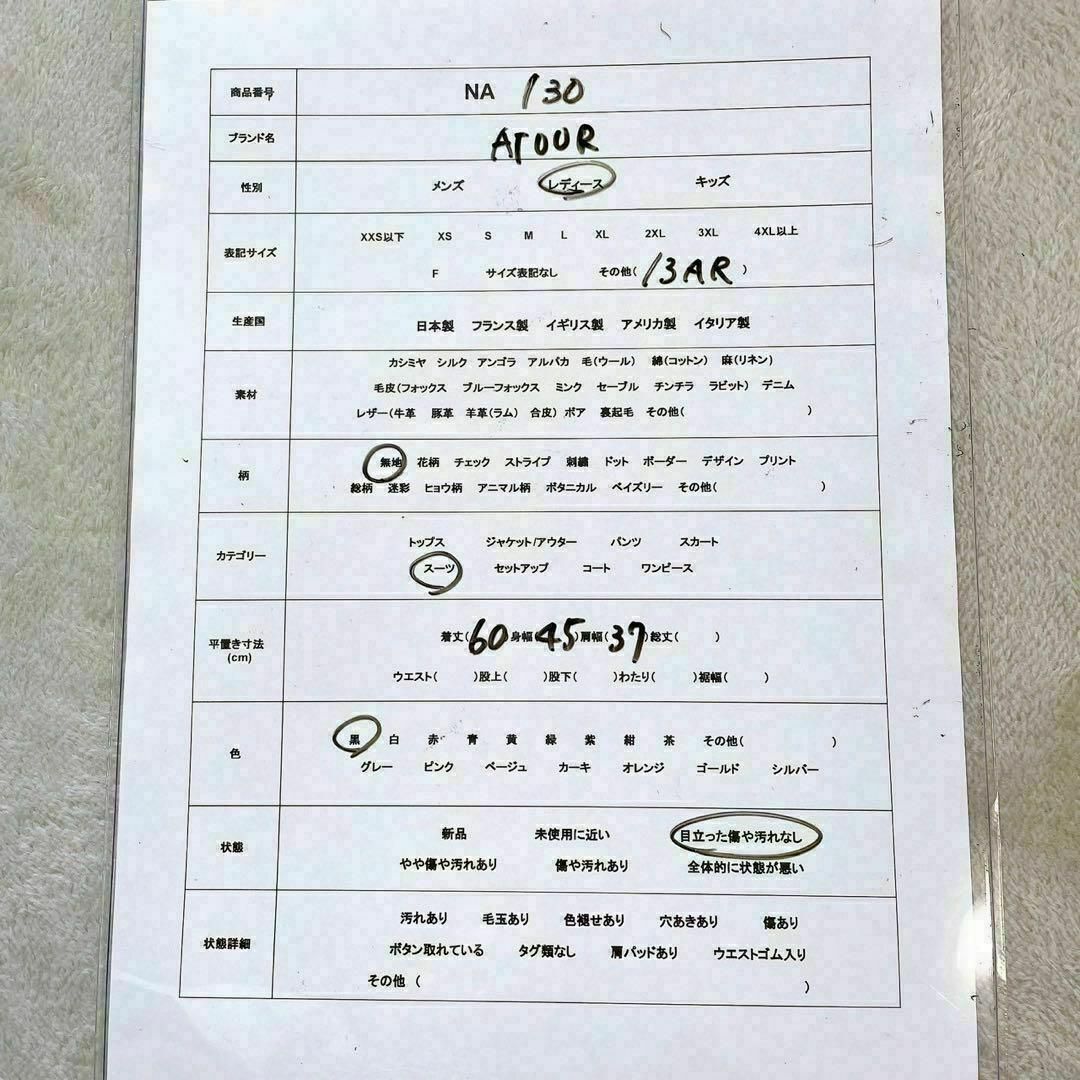 商品番号 NA 130
ブランド名 ATOUR
性別 メンズ レディース キッズ
表記サイズ
XXS以下 XS S M L XL 2XL 3XL 4XL以上
F サイズ表記なし その他(13AR)
生産国 日本製 フランス製 イギリス製 アメリカ製 イタリア製
素材
カシミヤ シルク アンゴラ アルパカ 毛(ウール) 綿(コットン) 麻(リネン)
毛皮(フォックス ブルーフォックス ミンク セーブル チンチラ ラビット) デニム
レザー(牛革 豚革 羊革(ラム) 合皮) ボア 裏起毛 その他( )
柄
無地 花柄 チェック ストライプ 刺繍 ドット ボーダー デザイン プリント
総柄 迷彩 ヒョウ柄 アニマル柄 ボタニカル ペイズリー その他( )
カテゴリー
トップス ジャケット/アウター パンツ スカート
スーツ セットアップ コート ワンピース
平置き寸法
(cm)
着丈(60)身幅(45)肩幅(37)総丈( )
ウエスト( )股上( )股下( )わたり( )裾幅( )
色
黒 白 赤 青 黄 緑 紫 紺 茶 その他( )
グレー ピンク ベージュ カーキ オレンジ ゴールド シルバー
状態
新品 未使用に近い 目立った傷や汚れなし
やや傷や汚れあり 傷や汚れあり 全体的に状態が悪い
状態詳細
汚れあり 毛玉あり 色褪せあり 穴あきあり 傷あり
ボタン取れている タグ類なし 肩パッドあり ウエストゴム入り
その他 ( )